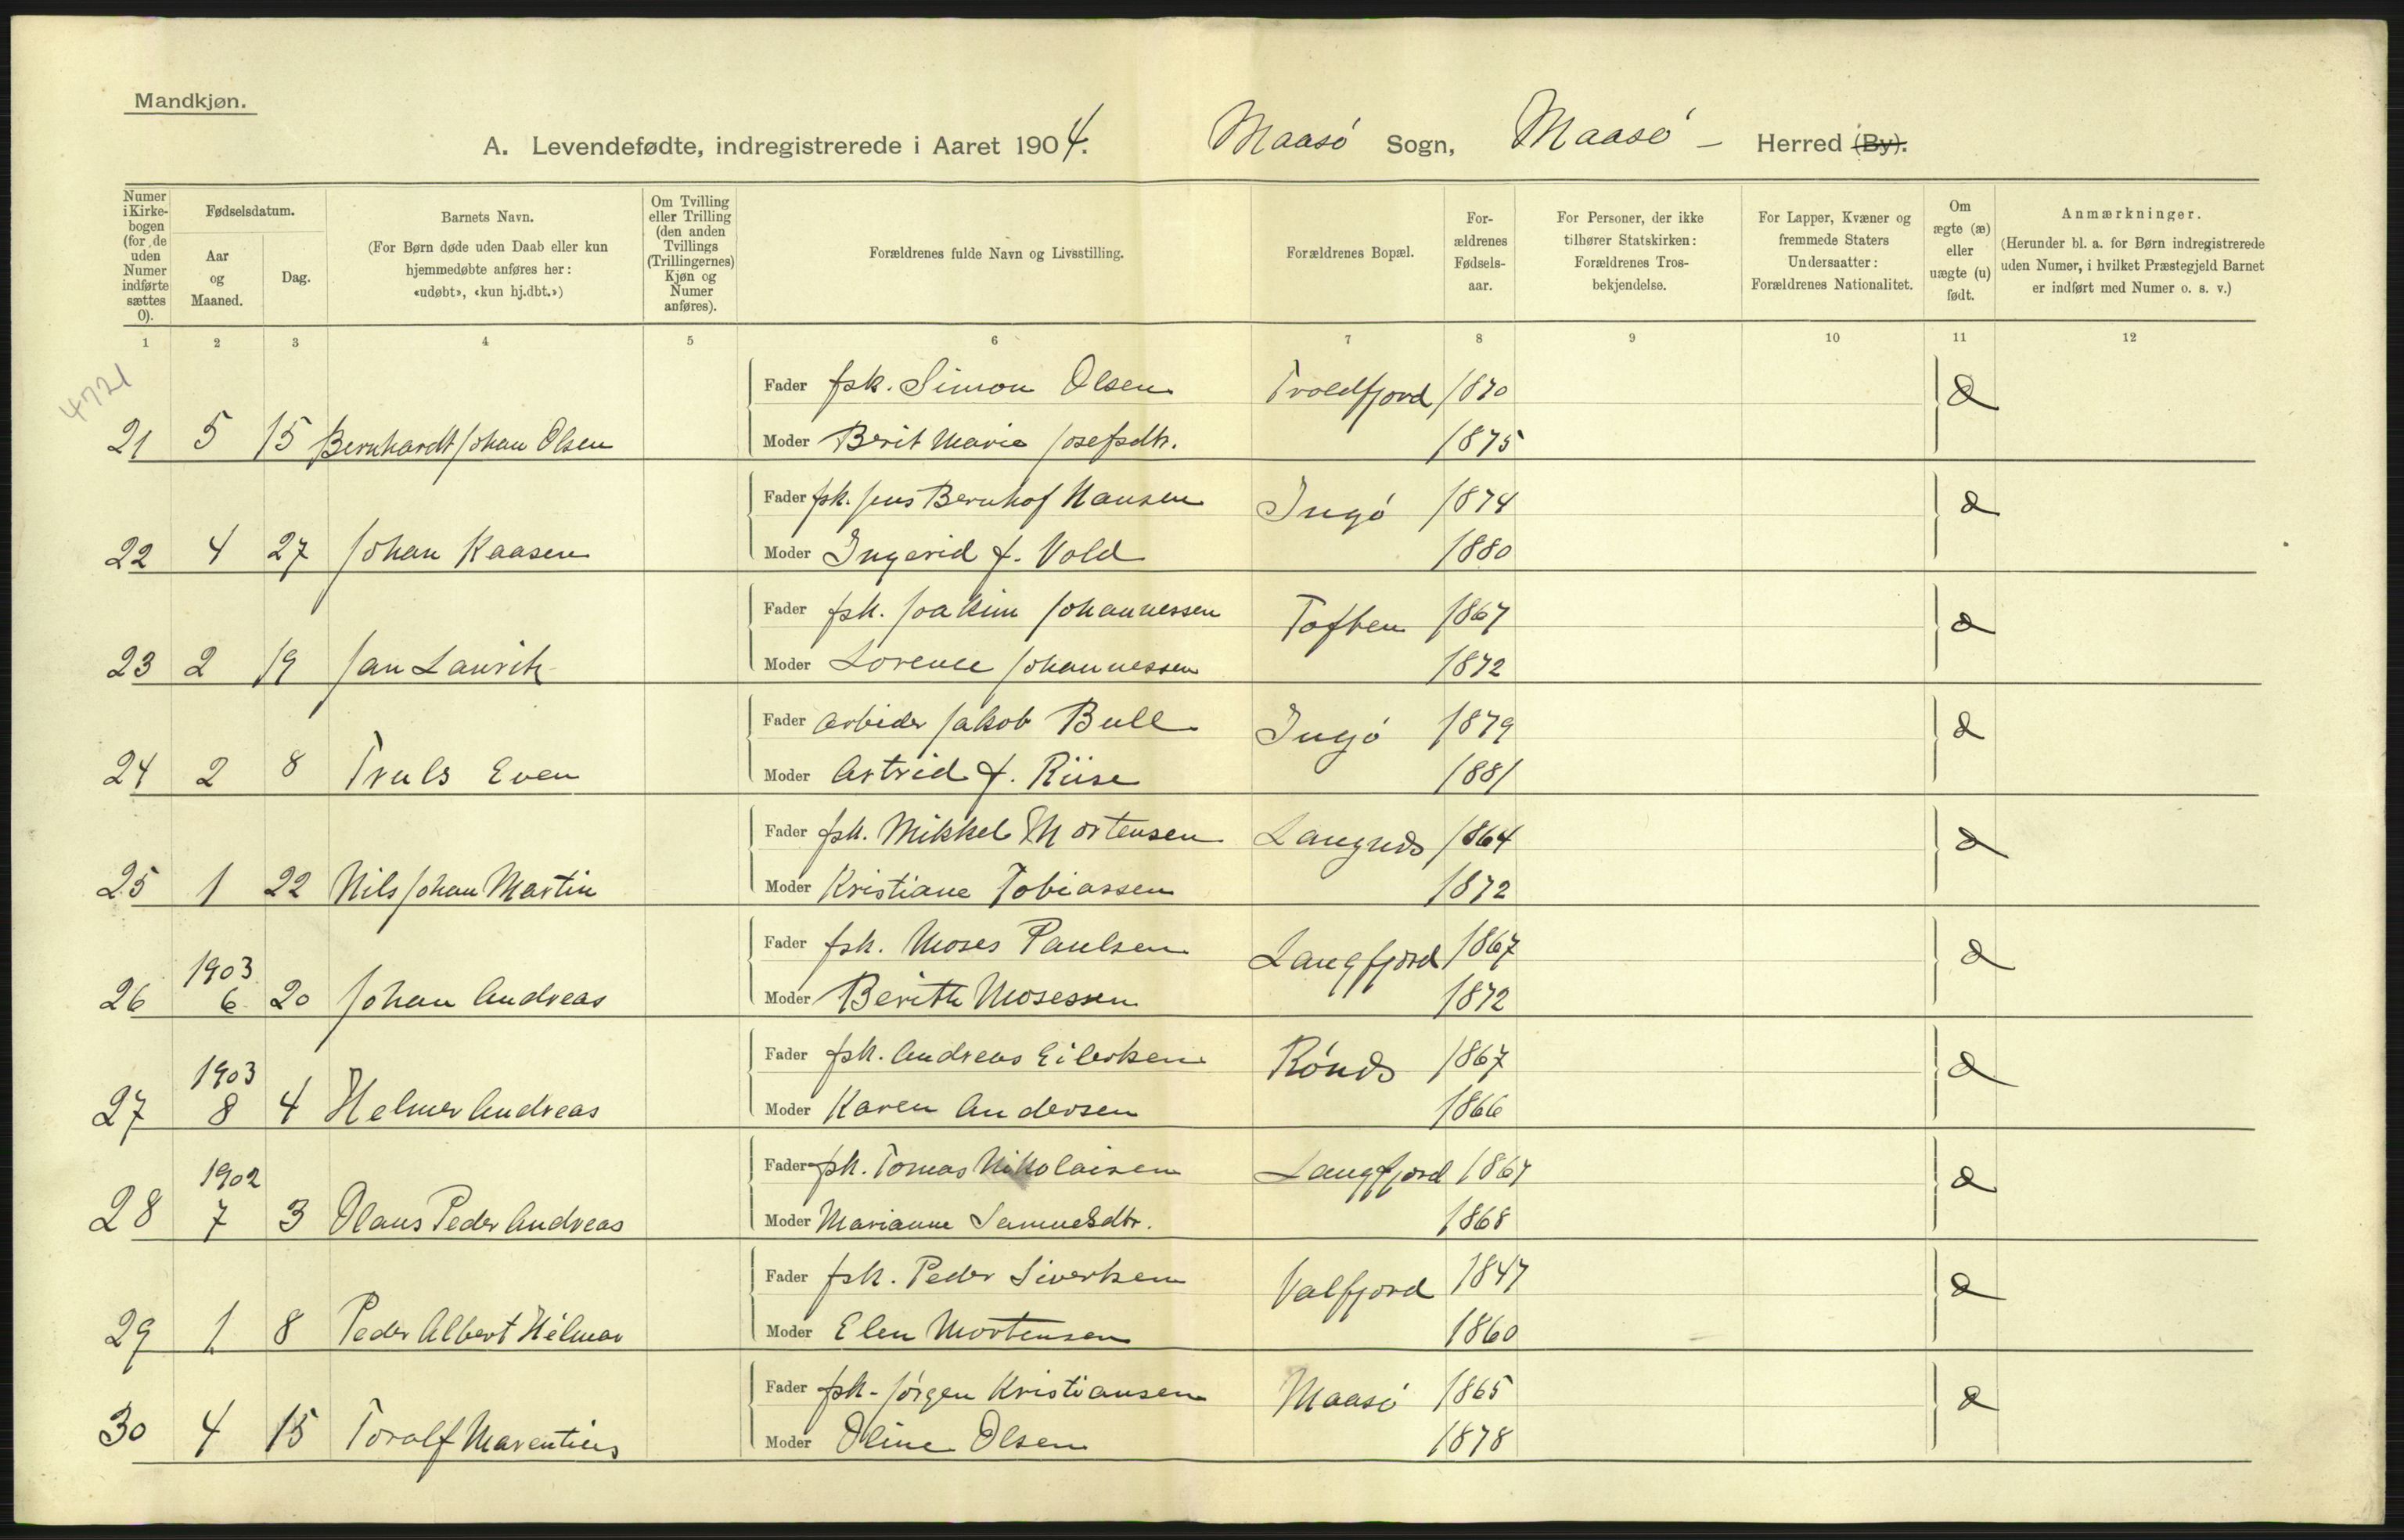 Mandkjøn.
A. Levendefødte, indregistrerede i Aaret 1904. Maasó Sogn, Maasó – Herred (By).
Numer i Kirke-bogen (for de uden Numer indførte sættes 0).
Fødselsdatum.
Aar og Maaned.
Dag.
Barnets Navn.
(For Børn døde uden Daab eller kun hjemmedøbte anføres her: «udøbt», «kun hj.dbt.»)
Om Tvilling eller Trilling (den anden Tvillings (Trillingernes) Kjøn og Numer anføres).
Forældrenes fulde Navn og Livsstilling.
Forældrenes Bopæl.
For-ældrenes Fødsels-aar.
For Personer, der ikke tilhører Statskirken: Forældrenes Tros-bekjendelse.
For Lapper, Kvæner og fremmede Staters Undersaatter: Forældrenes Nationalitet.
Om ægte (æ) eller uægte (u) født.
Anmærkninger.
(Herunder bl. a. for Børn indregistrerede uden Numer, i hvilket Præstegjeld Barnet er indført med Numer o. s. v.)
1 2 3 4 5 6 7 8 9 10 11 12
4721
Fader fsk. Simon Olsen Troldfjord 1870 æ
21 5 15 Bernhardt Johan Olsen Moder Berit Marie Josefsdtr. 1875
Fader fsk. Jens Bernhof Hansen Ingó 1874 æ
22 4 27 Johan Kaasen Moder Ingerid f. Vold 1880
Fader fsk. Joakim Johannessen Toften 1867 æ
23 2 19 Jan Lauritz Moder Lorence Johannessen 1872
Fader Arbeider Jakob Bull Ingó 1879 æ
24 2 8 Truls Even Moder Astrid f. Riise 1881
Fader fsk. Mikkel Mortensen Langnes 1864 æ
25 1 22 Nils Johan Martin Moder Kristiane Tobiassen 1872
Fader fsk. Moses Paulsen Langfjord 1867 æ
26 1903 6 20 Johan Andreas Moder Berith Mosessen 1872
Fader fsk. Andreas Eilertsen Rónes 1867 æ
27 1903 8 4 Helmer Andreas Moder Karen Andersen 1866
Fader fsk. Tomas Nikolaisen Langfjord 1867 æ
28 1902 7 3 Olaus Peder Andreas Moder Marianne Samuelsdtr. 1868
Fader fsk. Peder Sivertsen Valfjord 1847 æ
29 1 8 Peder Albert Hilmar Moder Elen Mortensen 1860
Fader fsk. Jórgen Kristiansen Maasó 1865 æ
30 4 15 Toralf Marentius Moder Oline Olsen 1878